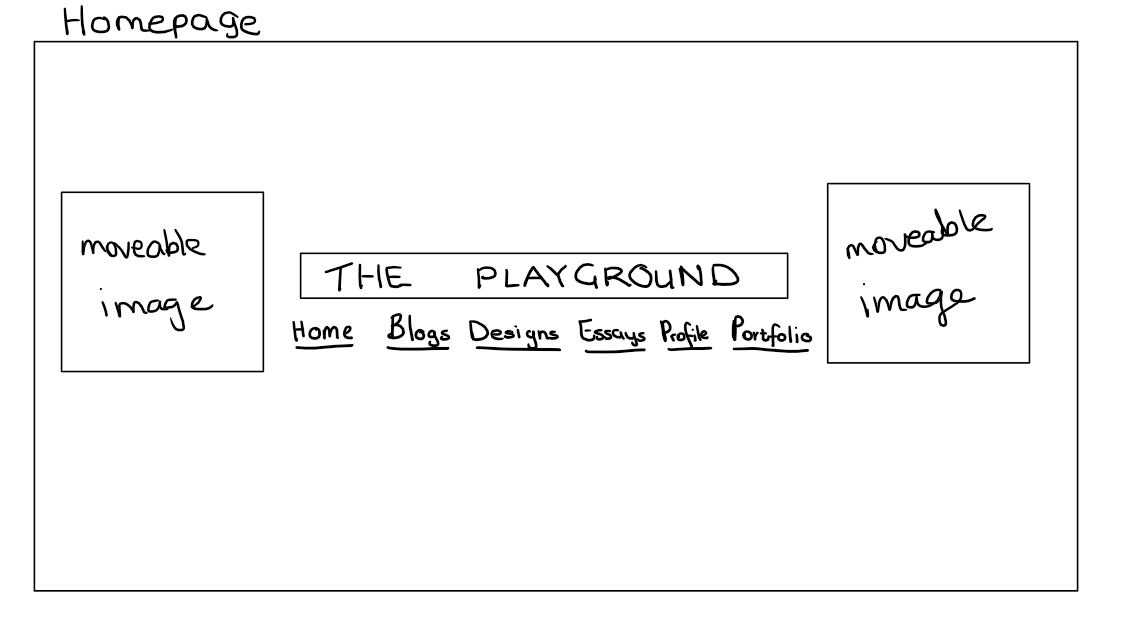 Homepage
moveable
image
THE PLAYGROUND
Home Blogs Designs Essays Profile Portfolio
moveable
image